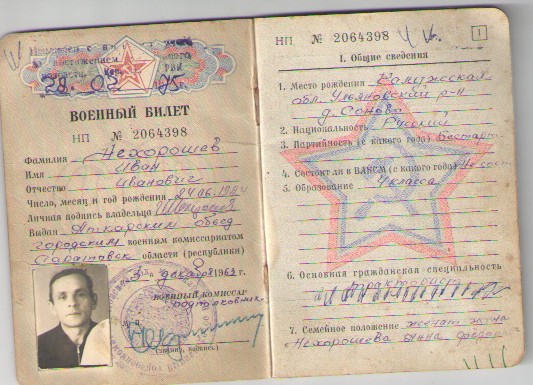 28 02 75г.
ВОЕННЫЙ БИЛЕТ
НП № 2064398
Фамилия Нехорошев
Имя Иван
Отчество Иванович
Число, месяц и год рождения 24.06.19
Личная подпись владельца
Выдан Аткарским объед
городским военным комиссариатом
Саратовск области (республики)
3 декабря 1963 г.
ВОЕННЫЙ КОМИССАР
подполковник
М. П.
(звание, подпись)
НП № 2064398
1
I. Общие сведения
1. Место рождения Калужская
обл. Ульяновский р-н
д.
2. Национальность Русский
3. Партийность (с какого года)
4. Состоит ли в ВЛКСМ (с какого года) Не сост
5. Образование 4 класса
6. Основная гражданская специальность
тракторист
7. Семейное положение женат жена
Нехорошева Анна Федор